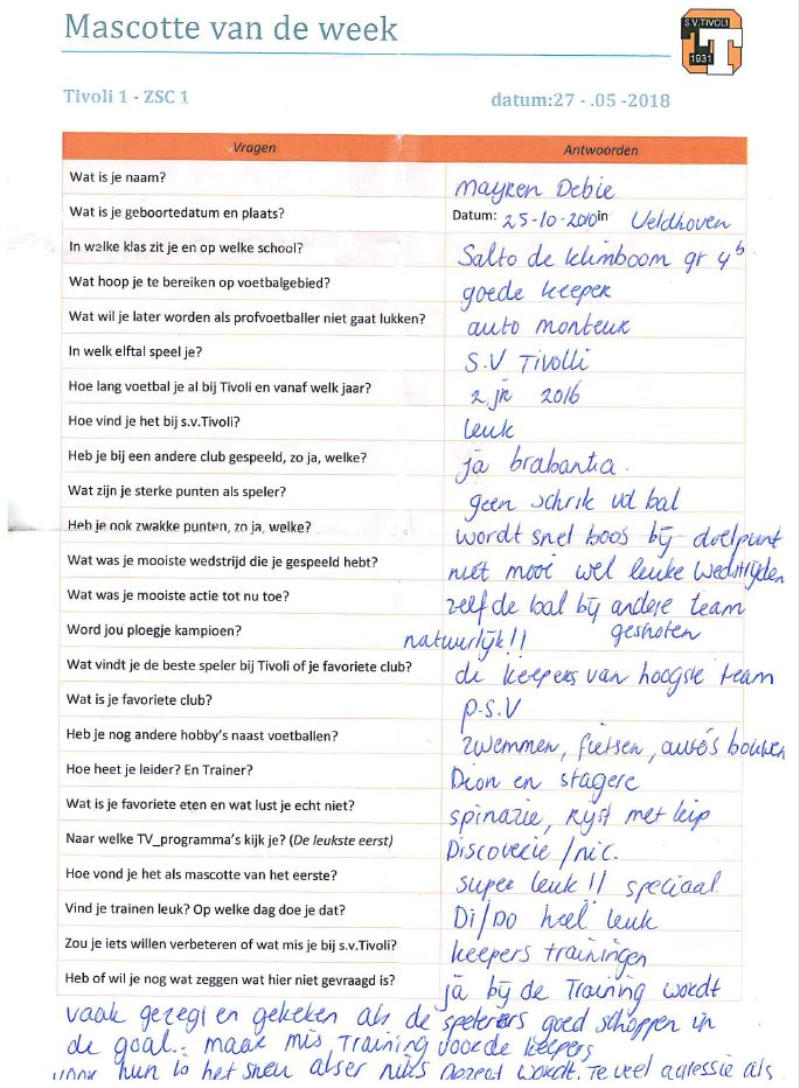 Mascotte van de week
S.V.TIVOLI
1931
Tivoli 1 - ZSC 1 datum:27 - .05 -2018
Vragen Antwoorden
Wat is je naam? Mayren Debie
Wat is je geboortedatum en plaats? Datum: 25-10-2010 in Veldhoven
In welke klas zit je en op welke school? Salto de klimboom gr 4b
Wat hoop je te bereiken op voetbalgebied? goede keeper
Wat wil je later worden als profvoetballer niet gaat lukken? auto monteur
In welk elftal speel je? S.V Tivolli
Hoe lang voetbal je al bij Tivoli en vanaf welk jaar? 2 jr 2016
Hoe vind je het bij s.v.Tivoli? leuk
Heb je bij een andere club gespeeld, zo ja, welke? ja brabantia.
Wat zijn je sterke punten als speler? geen schrik vd bal
Heb je ook zwakke punten, zo ja, welke? wordt snel boos bij doelpunt
Wat was je mooiste wedstrijd die je gespeeld hebt? niet mooi wel leuke wedstrijden
Wat was je mooiste actie tot nu toe? zelf de bal bij andere team
geshoten
Word jou ploegje kampioen? natuurlijk!!
Wat vindt je de beste speler bij Tivoli of je favoriete club? de keepers van hoogste team
Wat is je favoriete club? P.S.V
Heb je nog andere hobby's naast voetballen? zwemmen, fietsen, auto's bouwen
Hoe heet je leider? En Trainer? Dion en stagere
Wat is je favoriete eten en wat lust je echt niet? spinazie, Ryst met kip
Naar welke TV_programma's kijk je? (De leukste eerst) Discoverie / nic.
Hoe vond je het als mascotte van het eerste? super leuk !! speciaal
Vind je trainen leuk? Op welke dag doe je dat? Di/Do heel leuk
Zou je iets willen verbeteren of wat mis je bij s.v.Tivoli? keepers trainingen
Heb of wil je nog wat zeggen wat hier niet gevraagd is? ja bij de Training wordt
vaak gezegt en gekeken als de speterers goed schoppen in
de goal. maar mis Training voor de keepers
voor hun is het sneu alser niks gezegt wordt. Te veel agressie als